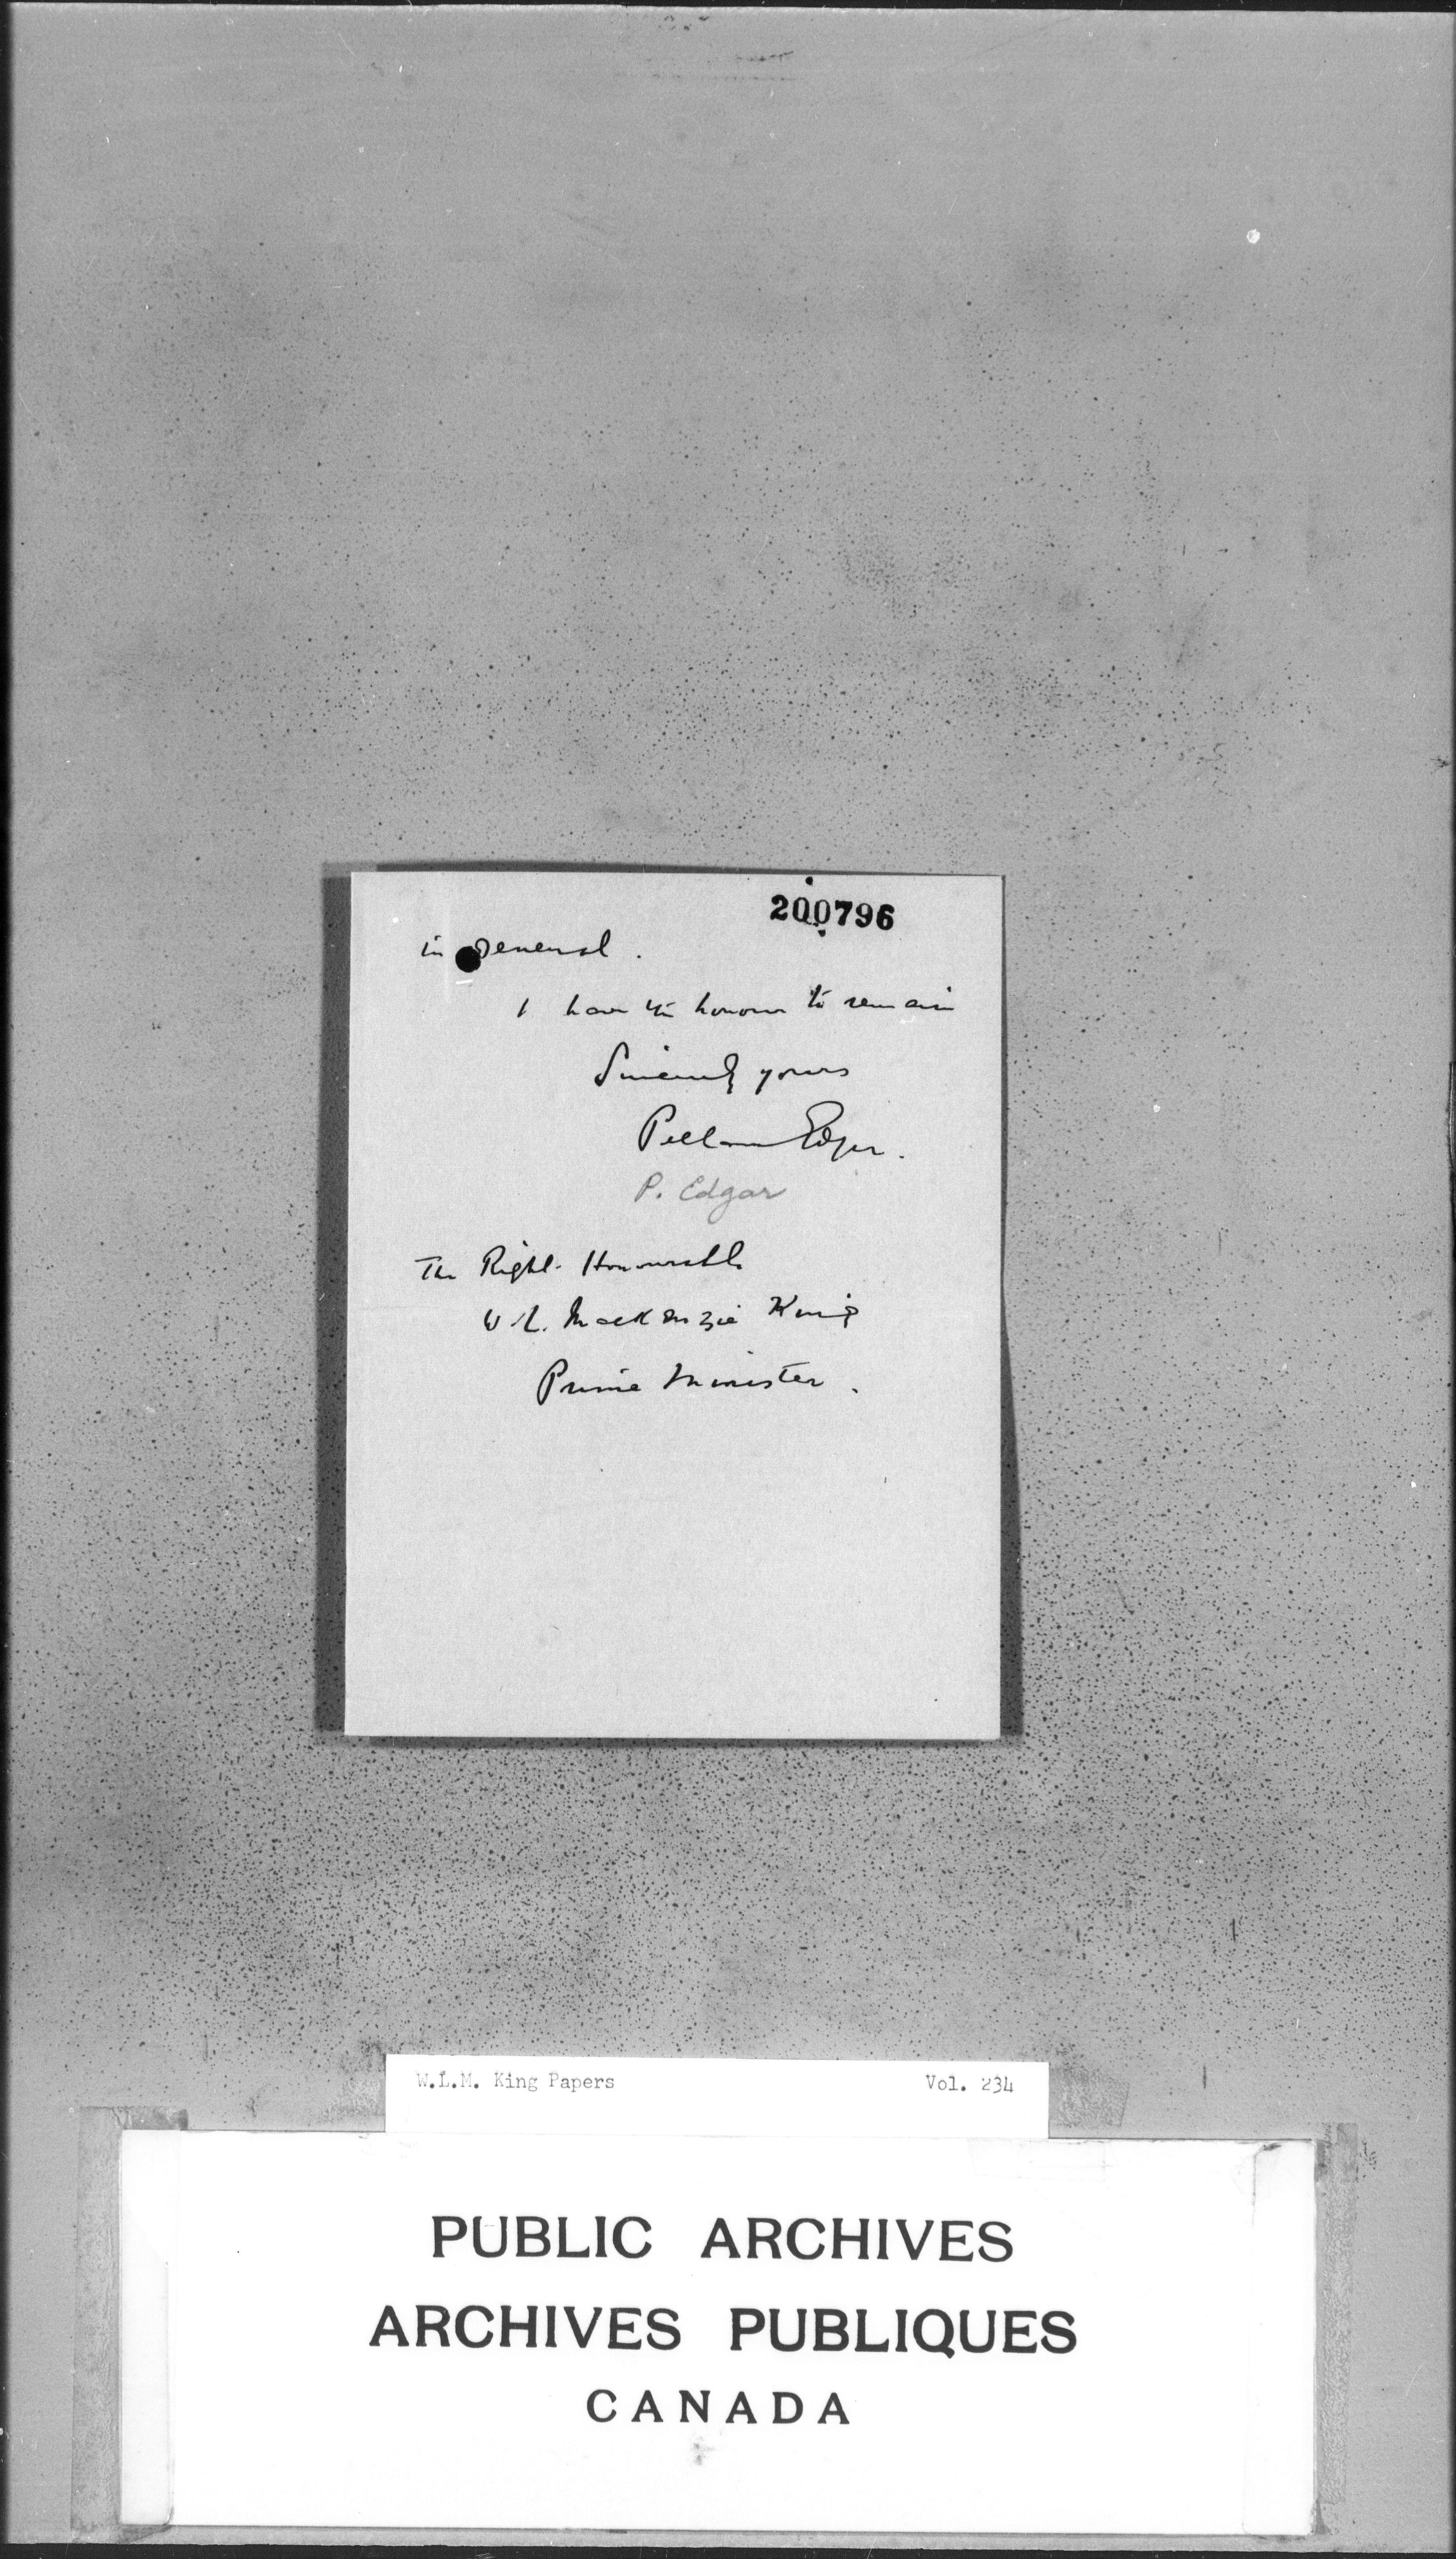 200796
in general.
I have the honour to remain
Sincerely yours
Pelham Edgar.
P. Edgar
The Right Honourable
W. L. MacKenzie King
Prime Minister.
W.L.M. King Papers Vol. 234
PUBLIC ARCHIVES
ARCHIVES PUBLIQUES
CANADA